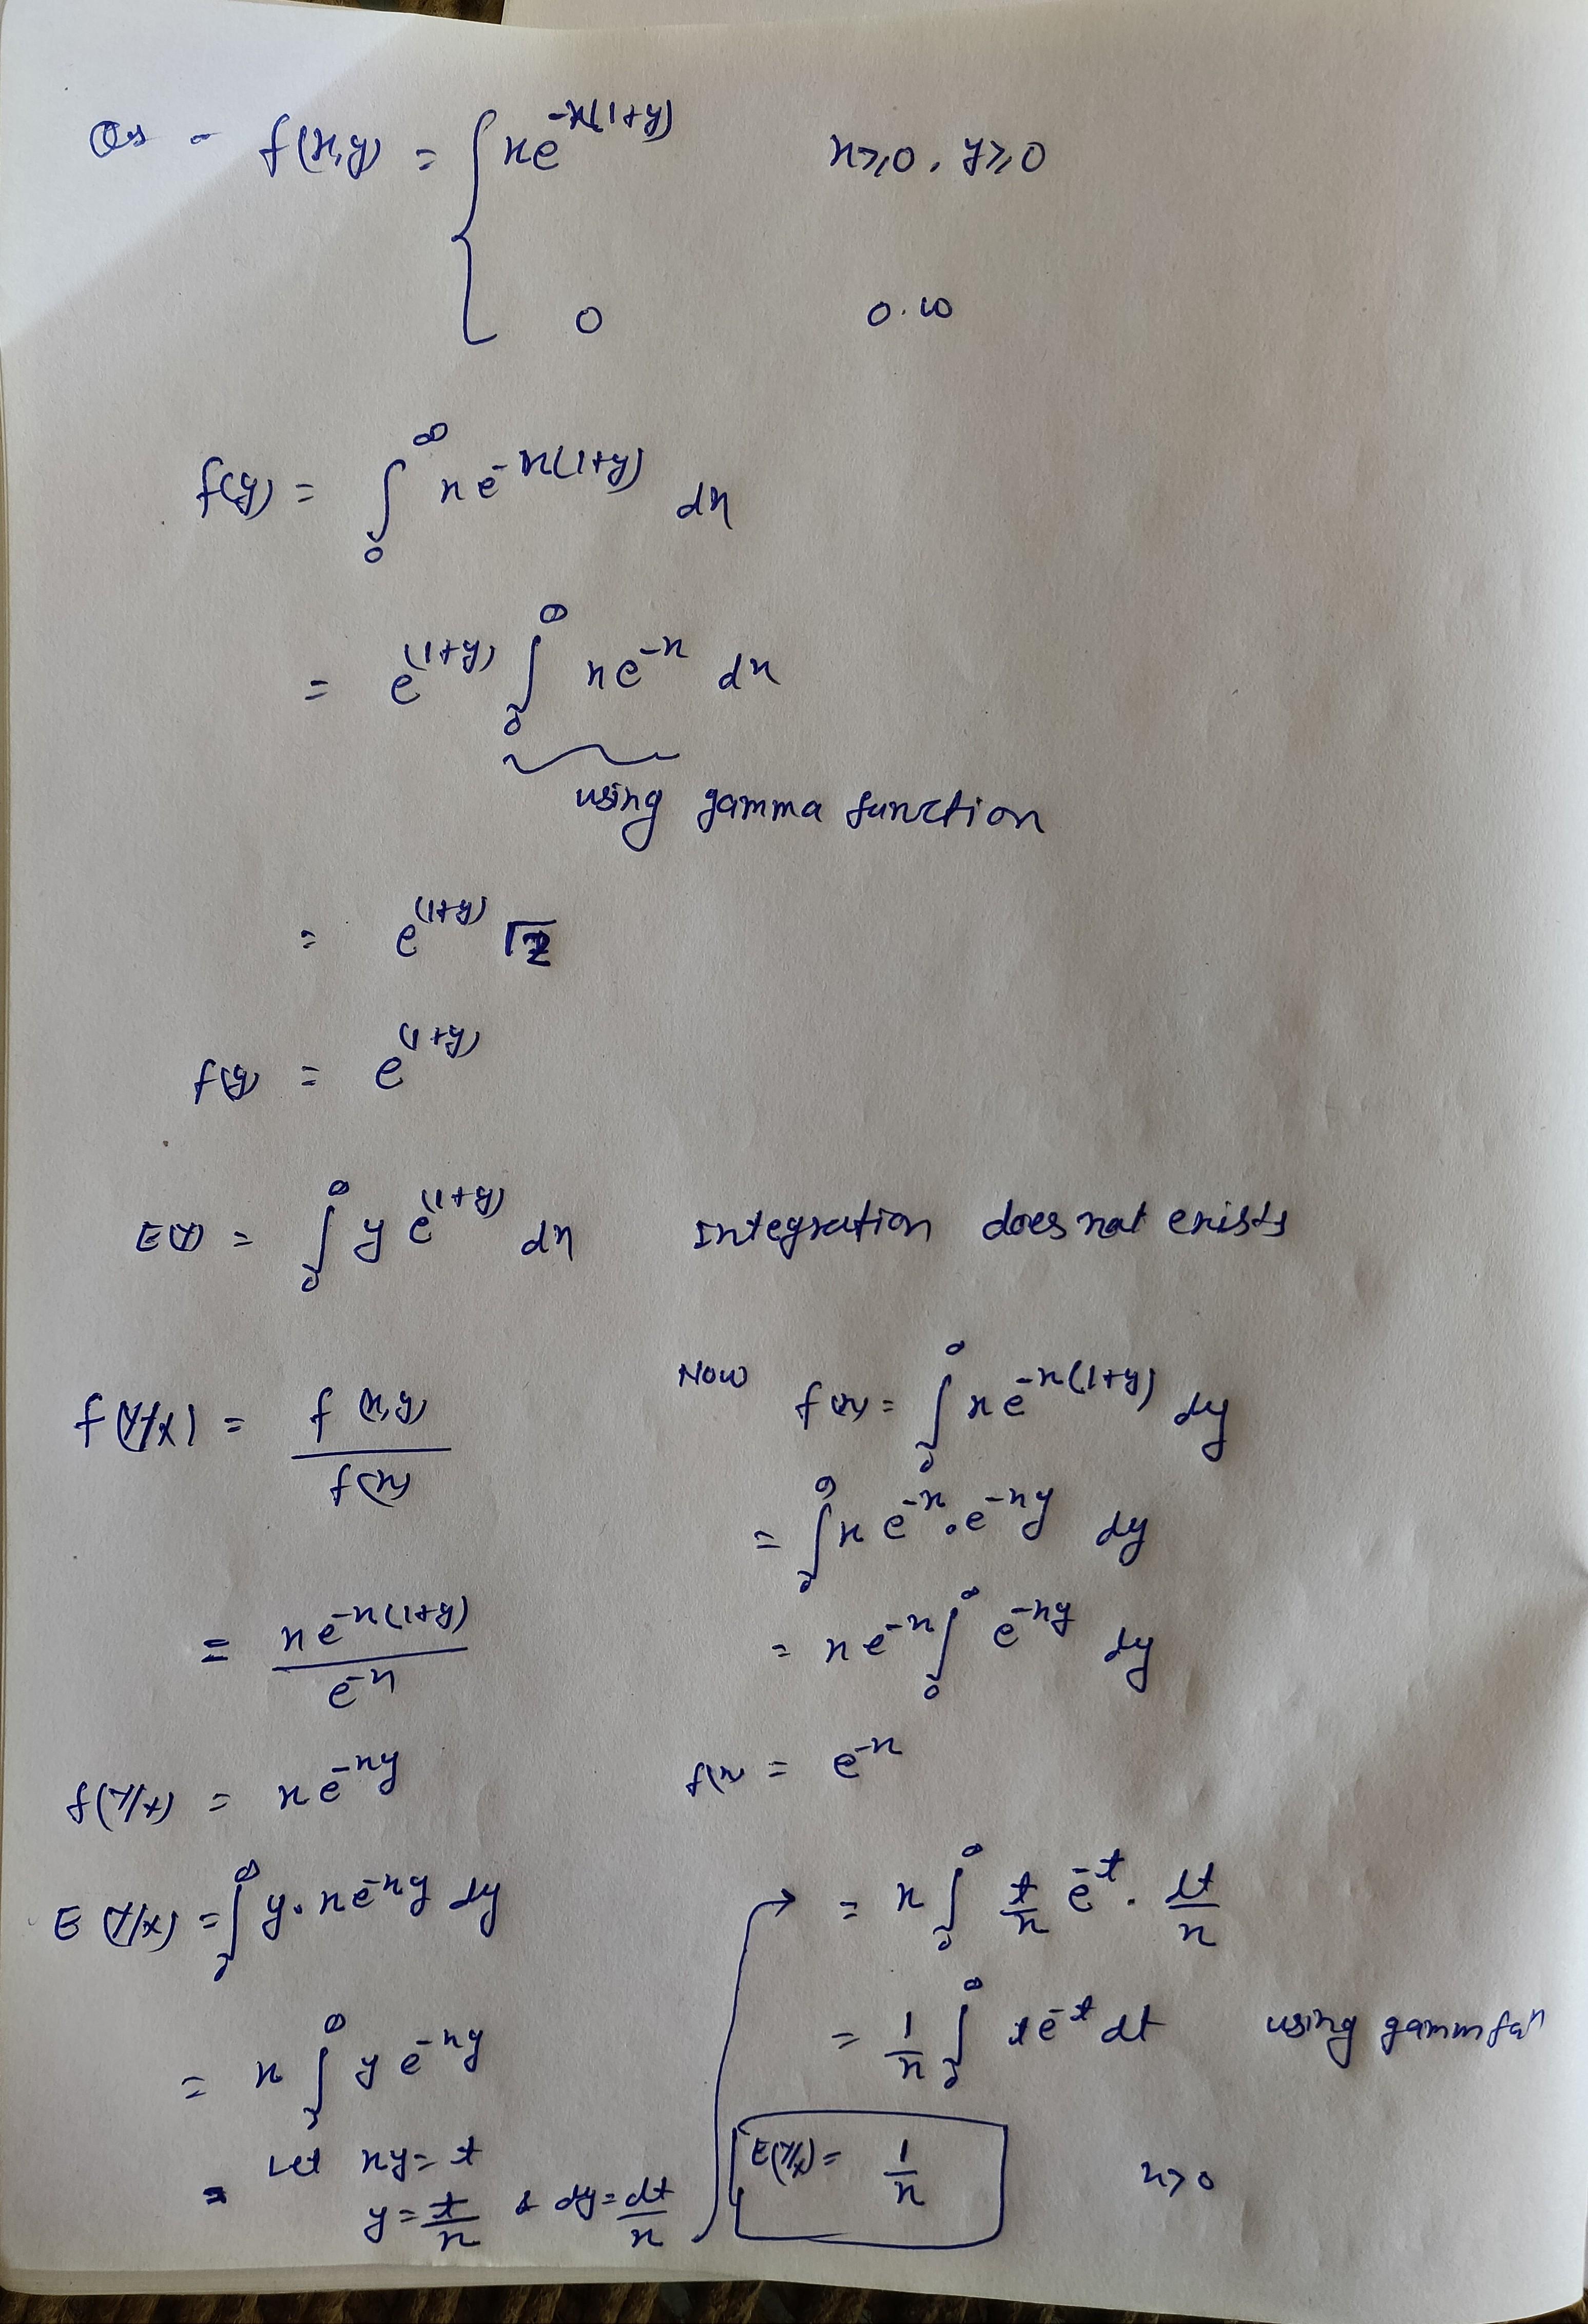 Qs - f(x,y) = { xe^{-x(1+y)} x≥0, y≥0
0 o.w
f(y) = ∫_0^∞ xe^{-x(1+y)} dx
= e^{(1+y)} ∫_0^∞ xe^{-x} dx
using gamma function
= e^{(1+y)} Γ2
f(y) = e^{(1+y)}
E(Y) = ∫_0^∞ y e^{(1+y)} dx Integration does not exists
f(Y/X) = f(x,y)/f(x)
= xe^{-x(1+y)}/e^{-x}
f(Y/X) = xe^{-xy}
E(Y/X) = ∫_0^∞ y. xe^{-xy} dy
= x ∫_0^∞ y e^{-xy}
= Let xy = t
y = t/x & dy = dt/x
Now f(x) = ∫_0^∞ xe^{-x(1+y)} dy
= ∫_0^∞ x e^{-x}. e^{-xy} dy
= xe^{-x} ∫_0^∞ e^{-xy} dy
f(x) = e^{-x}
→ = x ∫_0^∞ t/x e^{-t}. dt/x
= 1/x ∫_0^∞ te^{-t} dt using gamm fxn
E(Y/X) = 1/x x>0